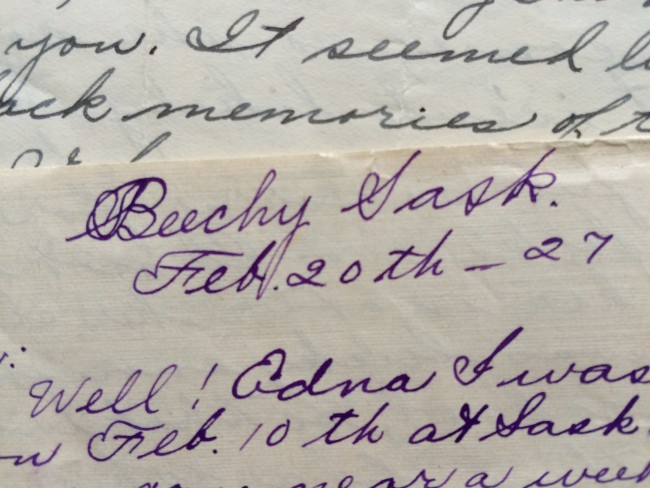 you. It seemed
memories of
Beechy Sask.
Feb. 20th – 27
Well! Edna I was
on Feb. 10th at Sask.
near a week